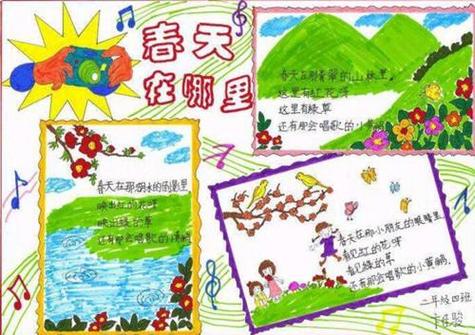 春天
在哪里
春天在那青翠的山林里,
这里有红花呀
这里有绿草
还有那会唱歌的小黄鹂
春天在那湖水的倒影里
映出红的花呀
映出绿的草
还有那会唱歌的小黄鹂
春天在那小朋友的眼睛里
看见红的花呀
看见绿的草
还有那会唱歌的小黄鹂.
二年级四班